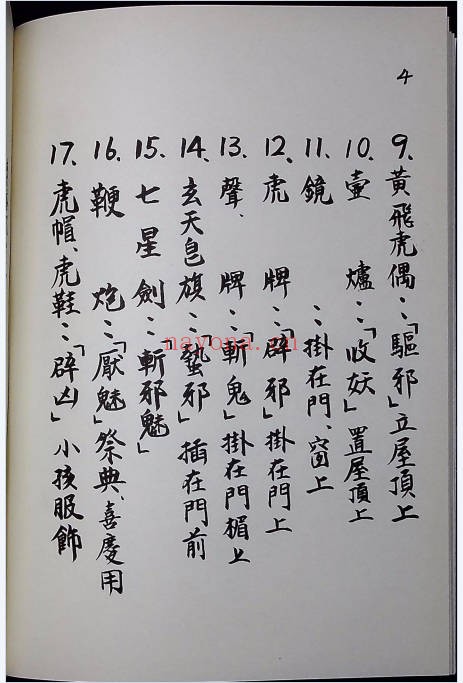 4
9、黃飛虎偶：「驅邪」立屋頂上
10、壺爐：「收妖」置屋頂上
11、鏡：掛在門、窗上
12、虎牌：「辟邪」掛在門上
13、聲、牌：「斬鬼」掛在門楣上
14、玄天皂旗：「蟄邪」插在門前
15、七星劍：「斬邪魅」
16、鞭炮：「厭魅」祭典、喜慶用
17、虎帽、虎鞋：「辟凶」小孩服飾
nayona.cn